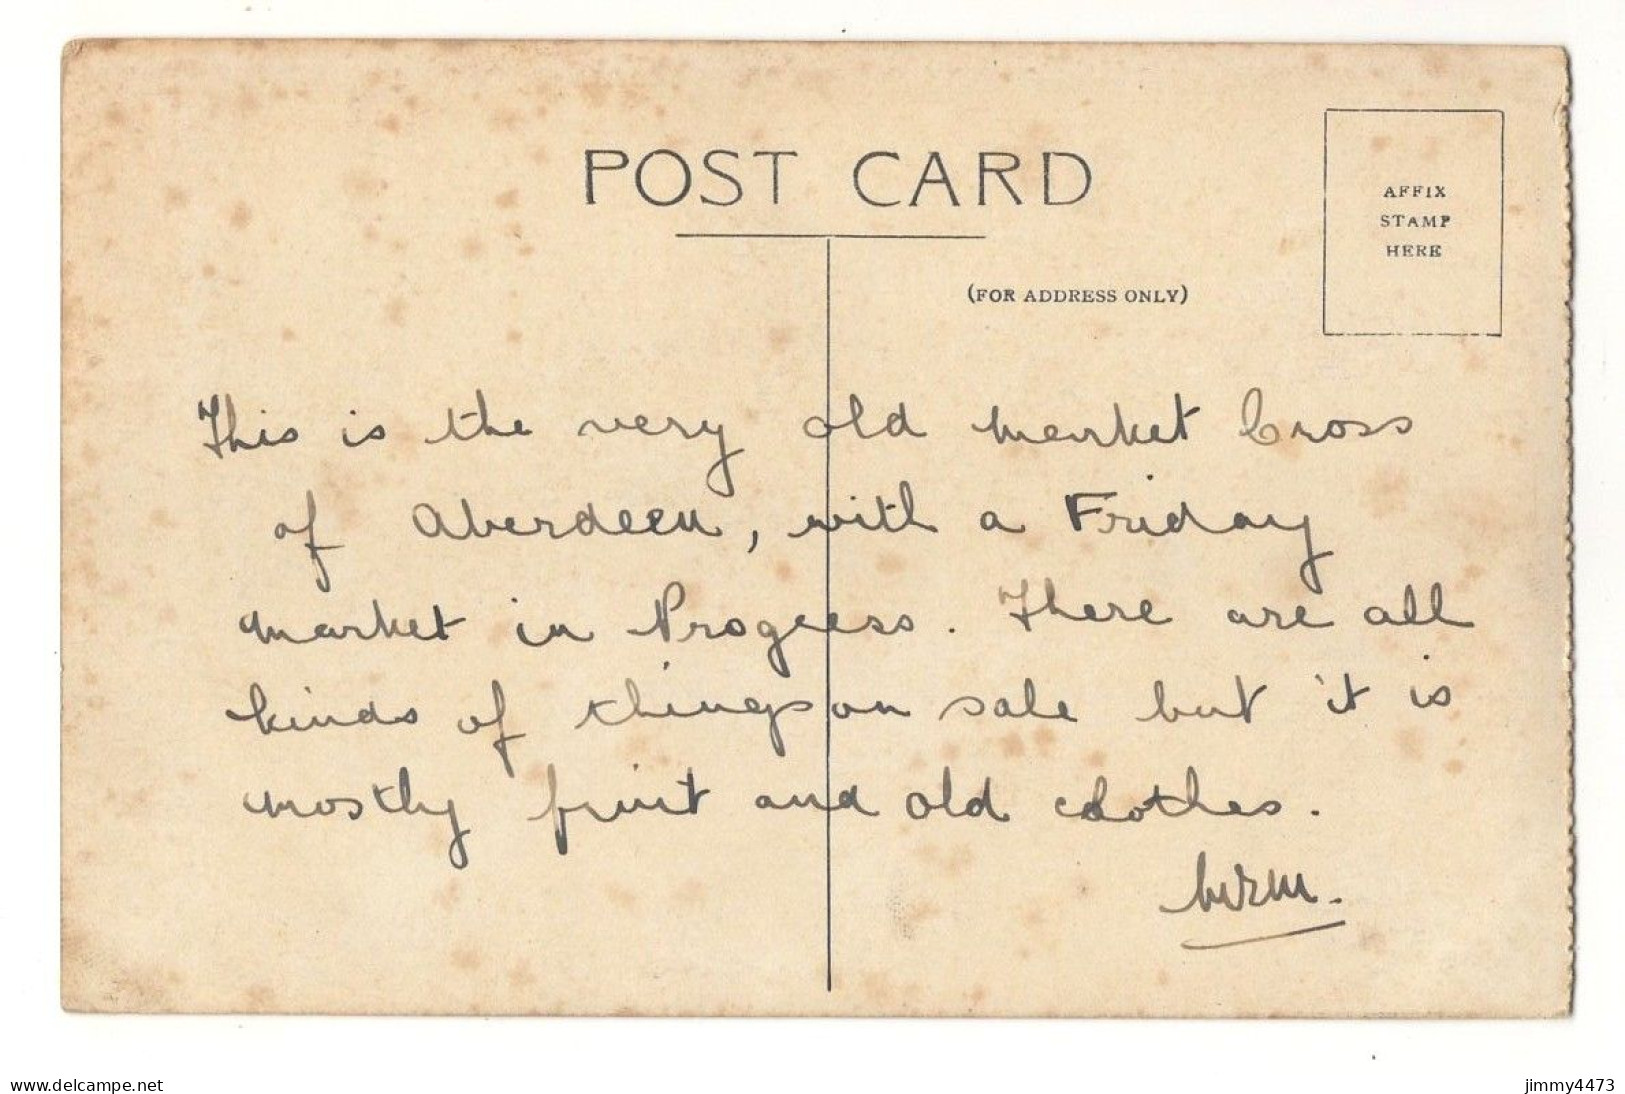 POST CARD
AFFIX
STAMP
HERE
(FOR ADDRESS ONLY)
This is the very old market Cross
of Aberdeen, with a Friday
market in Progress. There are all
kinds of things on sale but it is
mostly fruit and old clothes.
www.delcampe.net
jimmy4473